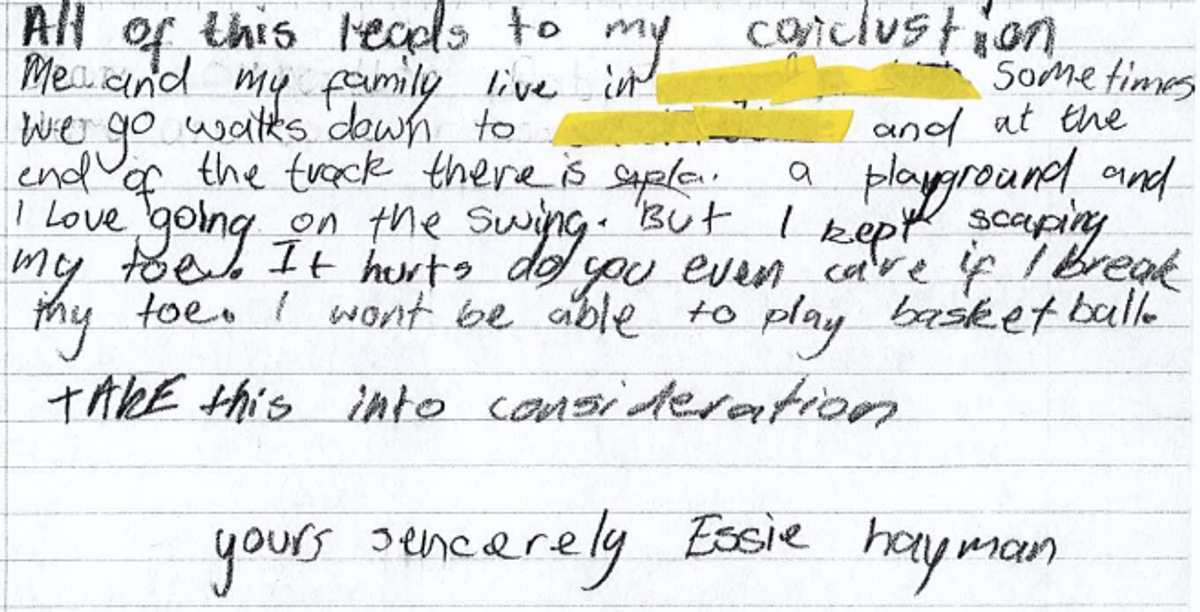 All of this leads to my conclustion
Me and my family live in Sometimes
we go walks down to and at the
end of the track there is apla. a playground and
I Love going on the swing. But I kept scaping
my toe. It hurts do you even care if I break
my toe. I wont be able to play basketball.
tAkE this into consideration
yours sencerely Essie hayman